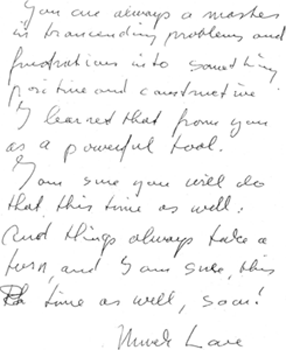 You are always a master
in transcending problems and
frustrations into something
positive and constructive
I learned that from you
as a powerful tool.
I am sure you will do
that this time as well.
And things always take a
turn, and I am sure, this
time as well, soon!
Much Love